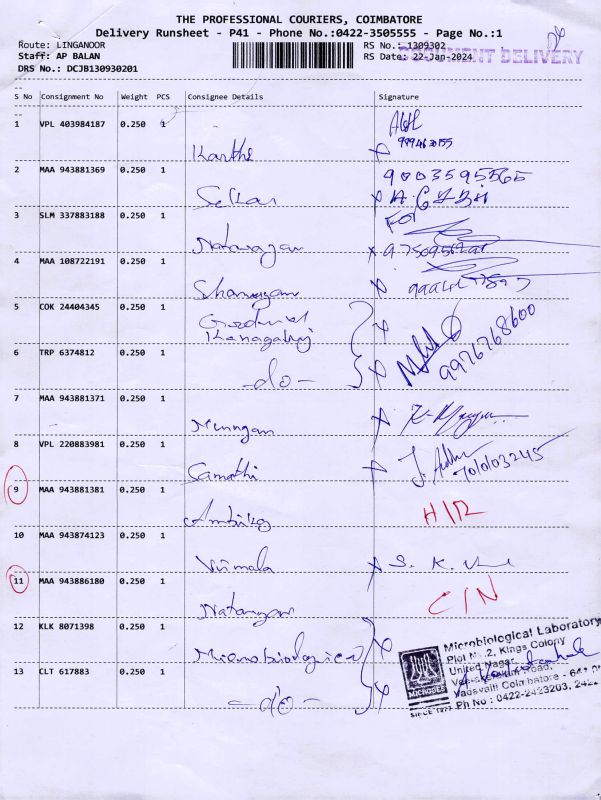 THE PROFESSIONAL COURIERS, COIMBATORE
Delivery Runsheet - P41 - Phone No.:0422-3505555 - Page No.:1
Route: LINGANOOR
RS No.: 1309302
DOCUMENT DELIVERY
Staff: AP BALAN
RS Date: 22-Jan-2024
DRS No.: DCJB130930201
S No Consignment No Weight PCS Consignee Details Signature
1 VPL 403984187 0.250 1
Karthi
2 MAA 943881369 0.250 1 9003595565
Sekar
3 SLM 337883188 0.250 1 For
Natarajan
4 MAA 108722191 0.250 1
Shanmugam
5 COK 24404345 0.250 1
Kanagaraj
6 TRP 6374812 0.250 1 9976768600
-do-
7 MAA 943881371 0.250 1
Murugan
8 VPL 220883981 0.250 1
Gamathi
9 MAA 943881381 0.250 1
Ambika
10 MAA 943874123 0.250 1
Vimala
11 MAA 943886180 0.250 1
C/N
Natarajan
12 KLK 8071398 0.250 1
Microbiological
13 CLT 617883 0.250 1
-do-
Microbiological Laboratory
Plot No.2, Kings Colony
United Nagar,
Road,
Vadavalli Coimbatore - 641
Ph No : 0422-2423203,
MICROBES
SINCE